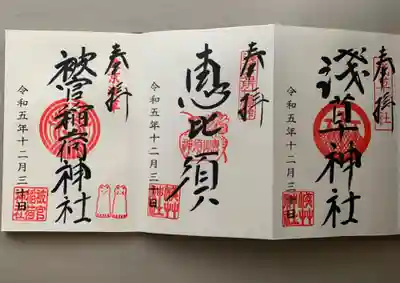 奉拝
淺草神社
令和五年十二月三十日
奉拝
恵比須
令和五年十二月三十日
奉拝
被官稲荷神社
令和五年十二月三十日